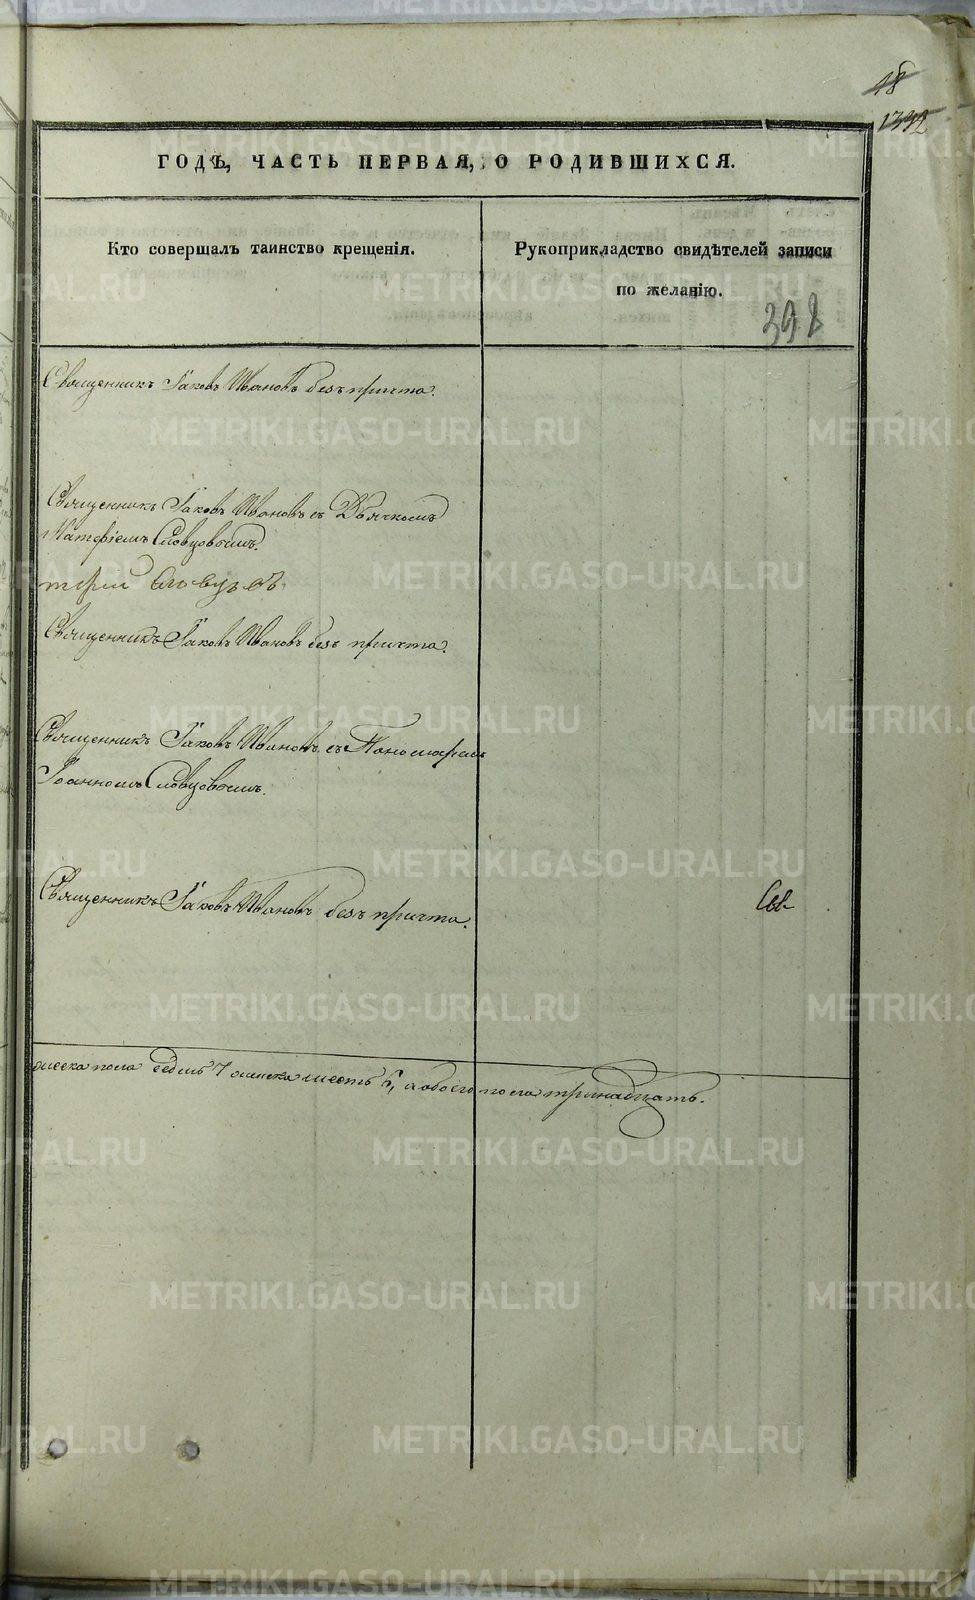 18
1332
ГОДЪ, ЧАСТЬ ПЕРВАЯ, О РОДИВШИХСЯ.
Кто совершалъ таинство крещенія.
Рукоприкладство свидѣтелей записи
по желанію.
398
Священникъ Іаковъ Ивановъ безъ причта.
Священникъ Іаковъ Ивановъ съ Дьячкомъ
Матфіемъ Словцовымъ.
Словцовъ
Священникъ Іаковъ Ивановъ безъ причта.
Священникъ Іаковъ Ивановъ съ Пономаремъ
Іоанномъ Словцовымъ.
Священникъ Іаковъ Ивановъ безъ причта.
Св-
мужеска пола седмь 7 женска шесть 6, а обоего пола тринадцать.
METRIKI.GASO-URAL.RU